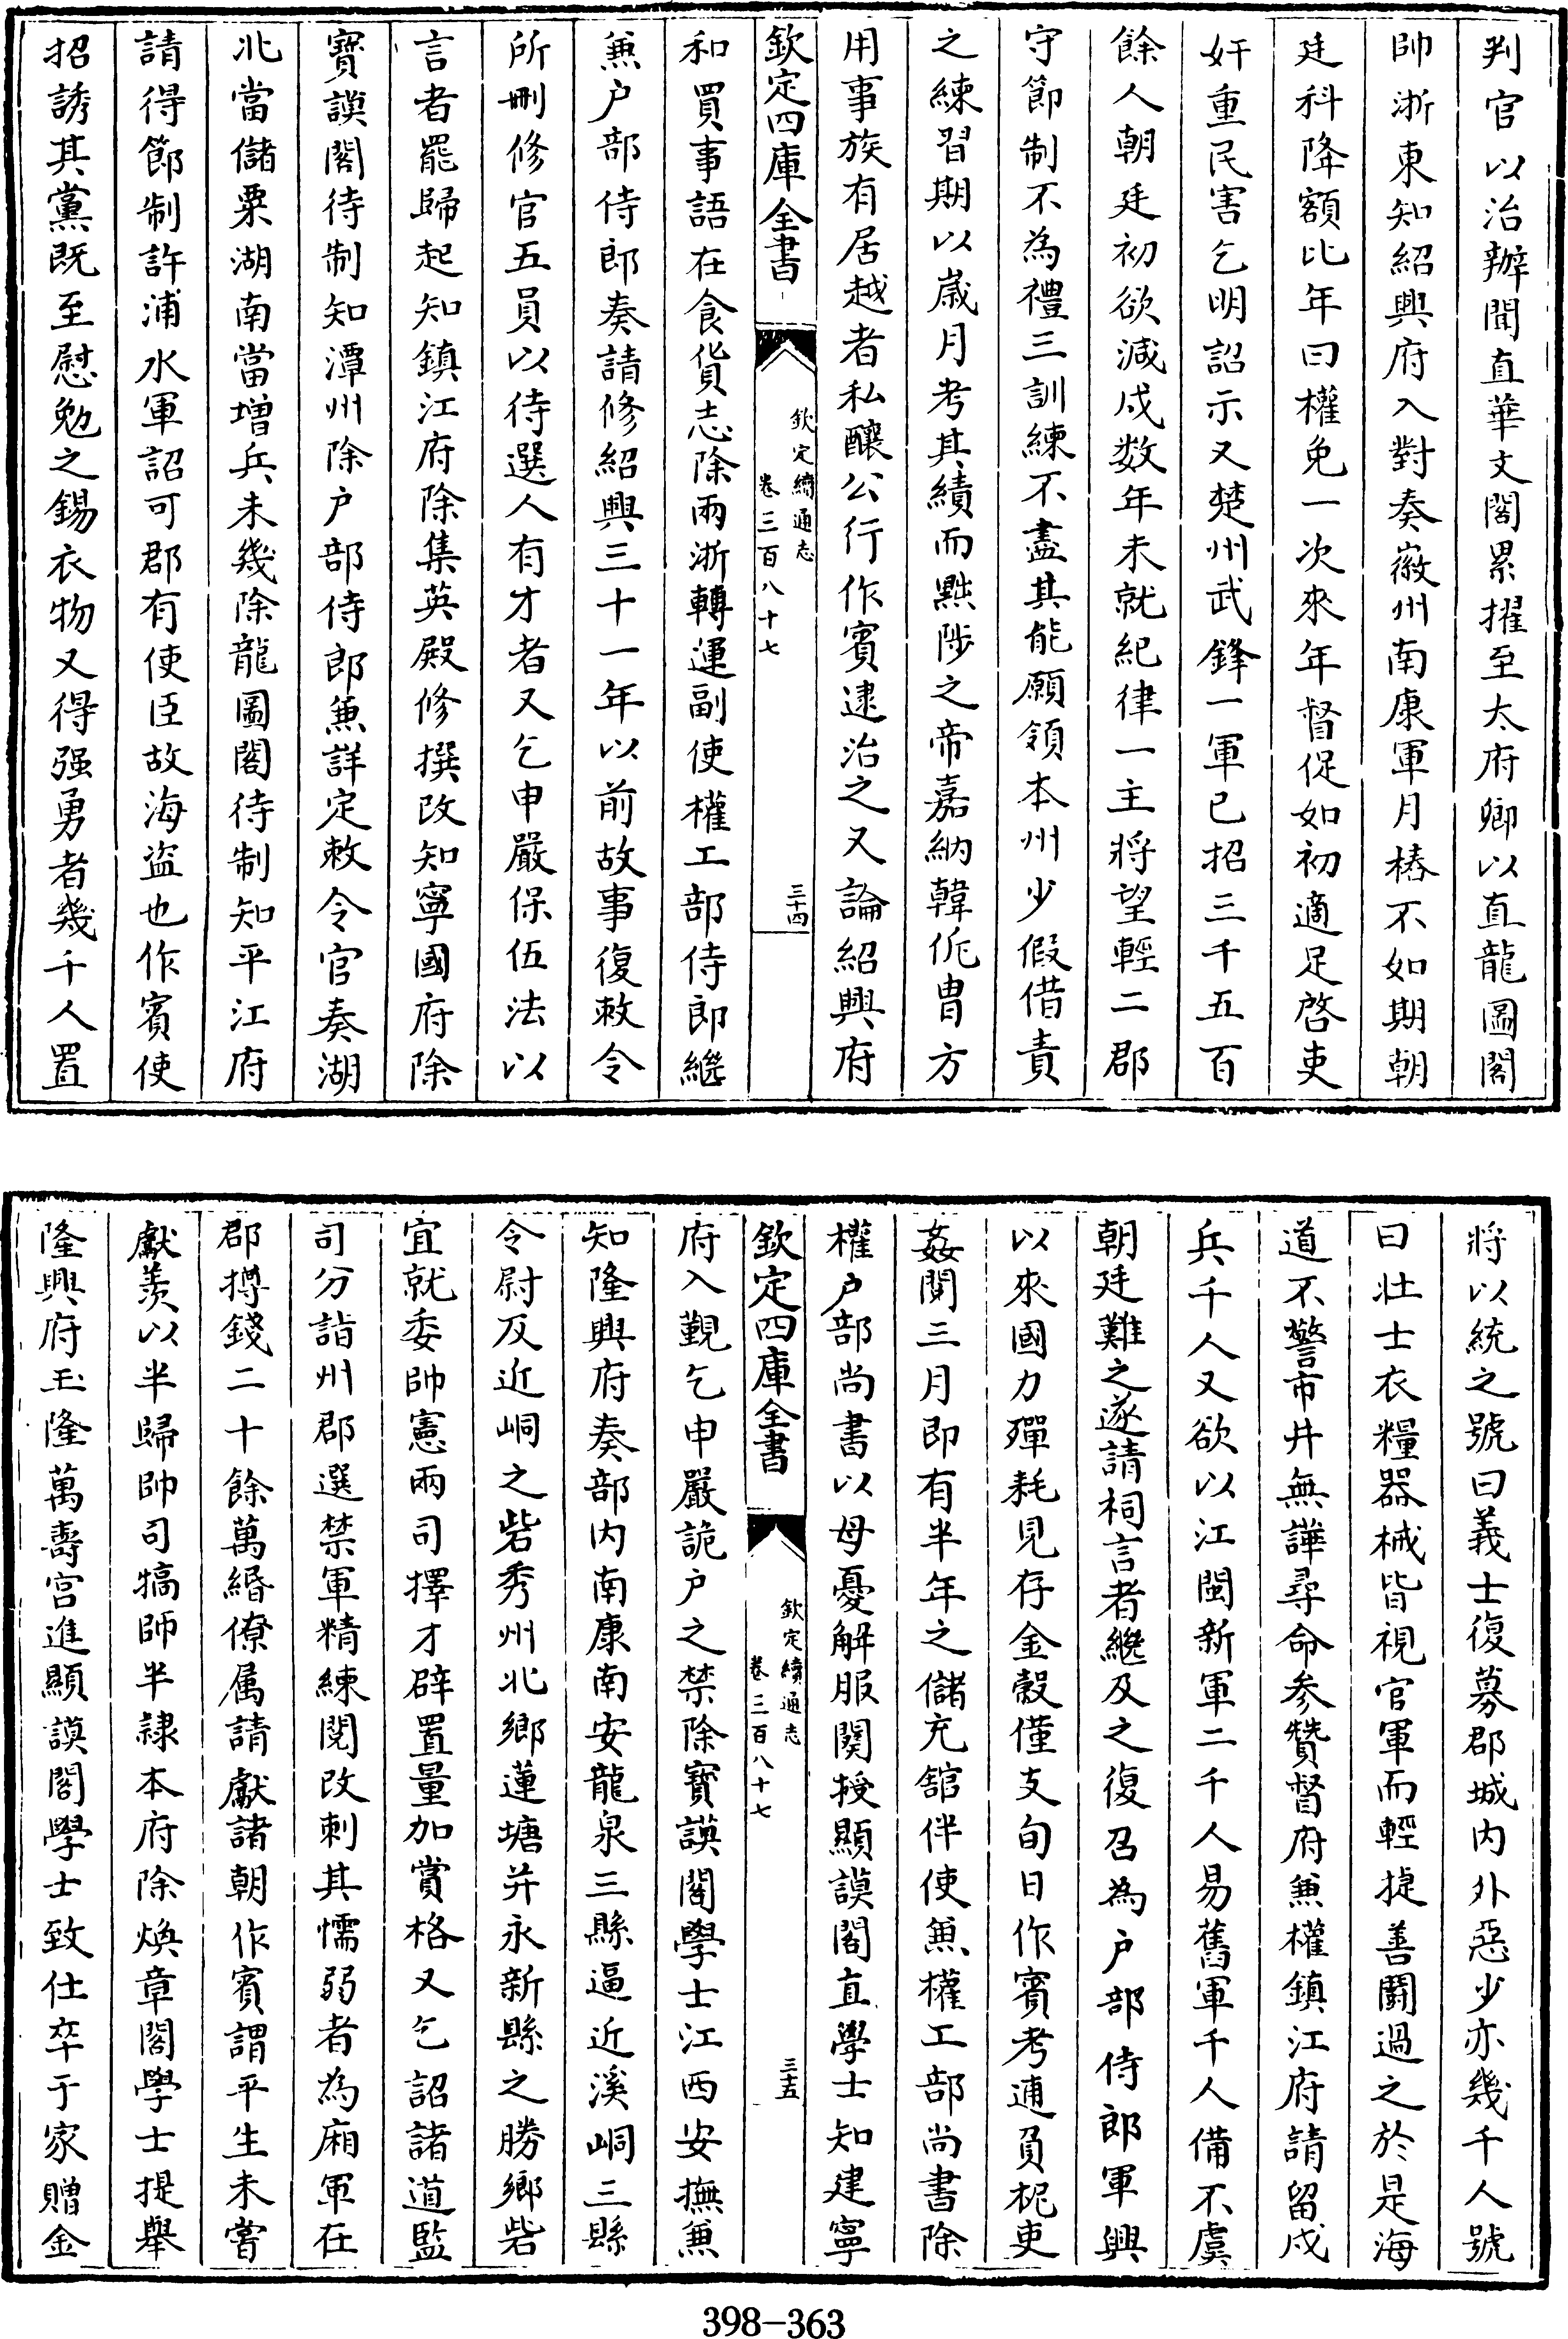 判官以治辦聞直華文閣累擢至太府卿以直龍圖閣
帥浙東知紹興府入對奏徽州南康軍月樁不如期朝
廷科降額比年曰權免一次來年督促如初適足啓吏
奸重民害乞明詔示又楚州武鋒一軍已招三千五百
餘人朝廷初欲減戍数年未就紀律一主將望輕二郡
守節制不為禮三訓練不盡其能願領本州少假借責
之練習期以歳月考其績而黜陟之帝嘉納韓侂胄方
用事族有居越者私釀公行作賓逮治之又論紹興府
欽定四庫全書
欽定續通志
卷三百八十七
三十四
和買事語在食貨志除兩浙轉運副使權工部侍郎繼
兼户部侍郎奏請修紹興三十一年以前故事復敕令
所刪修官五員以待選人有才者又乞申嚴保伍法以
言者罷歸起知鎮江府除集英殿修撰改知寧國府除
寶謨閣待制知潭州除户部侍郎兼詳定敕令官奏湖
北當儲粟湖南當増兵未幾除龍圖閣待制知平江府
請得節制許浦水軍詔可郡有使臣故海盜也作賓使
招誘其黨既至慰勉之錫衣物又得强勇者幾千人置
將以統之號曰義士復募郡城内外惡少亦幾千人號
曰壮士衣糧器械皆視官軍而輕捷善鬭過之於是海
道不警市井無譁尋命参贊督府兼權鎮江府請留戍
兵千人又欲以江閩新軍二千人易舊軍千人備不虞
朝廷難之遂請祠言者繼及之復召為户部侍郎軍興
以來國力殫耗見存金糓僅支旬日作賓考逋負柅吏
姦閱三月即有半年之儲充舘伴使兼權工部尚書除
權户部尚書以母憂解服闋授顯謨閣直學士知建寧
欽定四庫全書
欽定續通志
卷三百八十七
三十五
府入覲乞申嚴詭户之禁除寶謨閣學士江西安撫兼
知隆興府奏部内南康南安龍泉三縣逼近溪峒三縣
令尉及近峒之砦秀州北鄉蓮塘并永新縣之勝鄉砦
宜就委帥憲兩司擇才辟置量加賞格又乞詔諸道監
司分詣州郡選禁軍精練閱改刺其懦弱者為廂軍在
郡撙錢二十餘萬緡僚属請獻諸朝作賓謂平生未嘗
獻羡以半歸帥司犒師半隷本府除煥章閣學士提舉
隆興府玉隆萬夀宮進顯謨閣學士致仕卒于家贈金
398-363